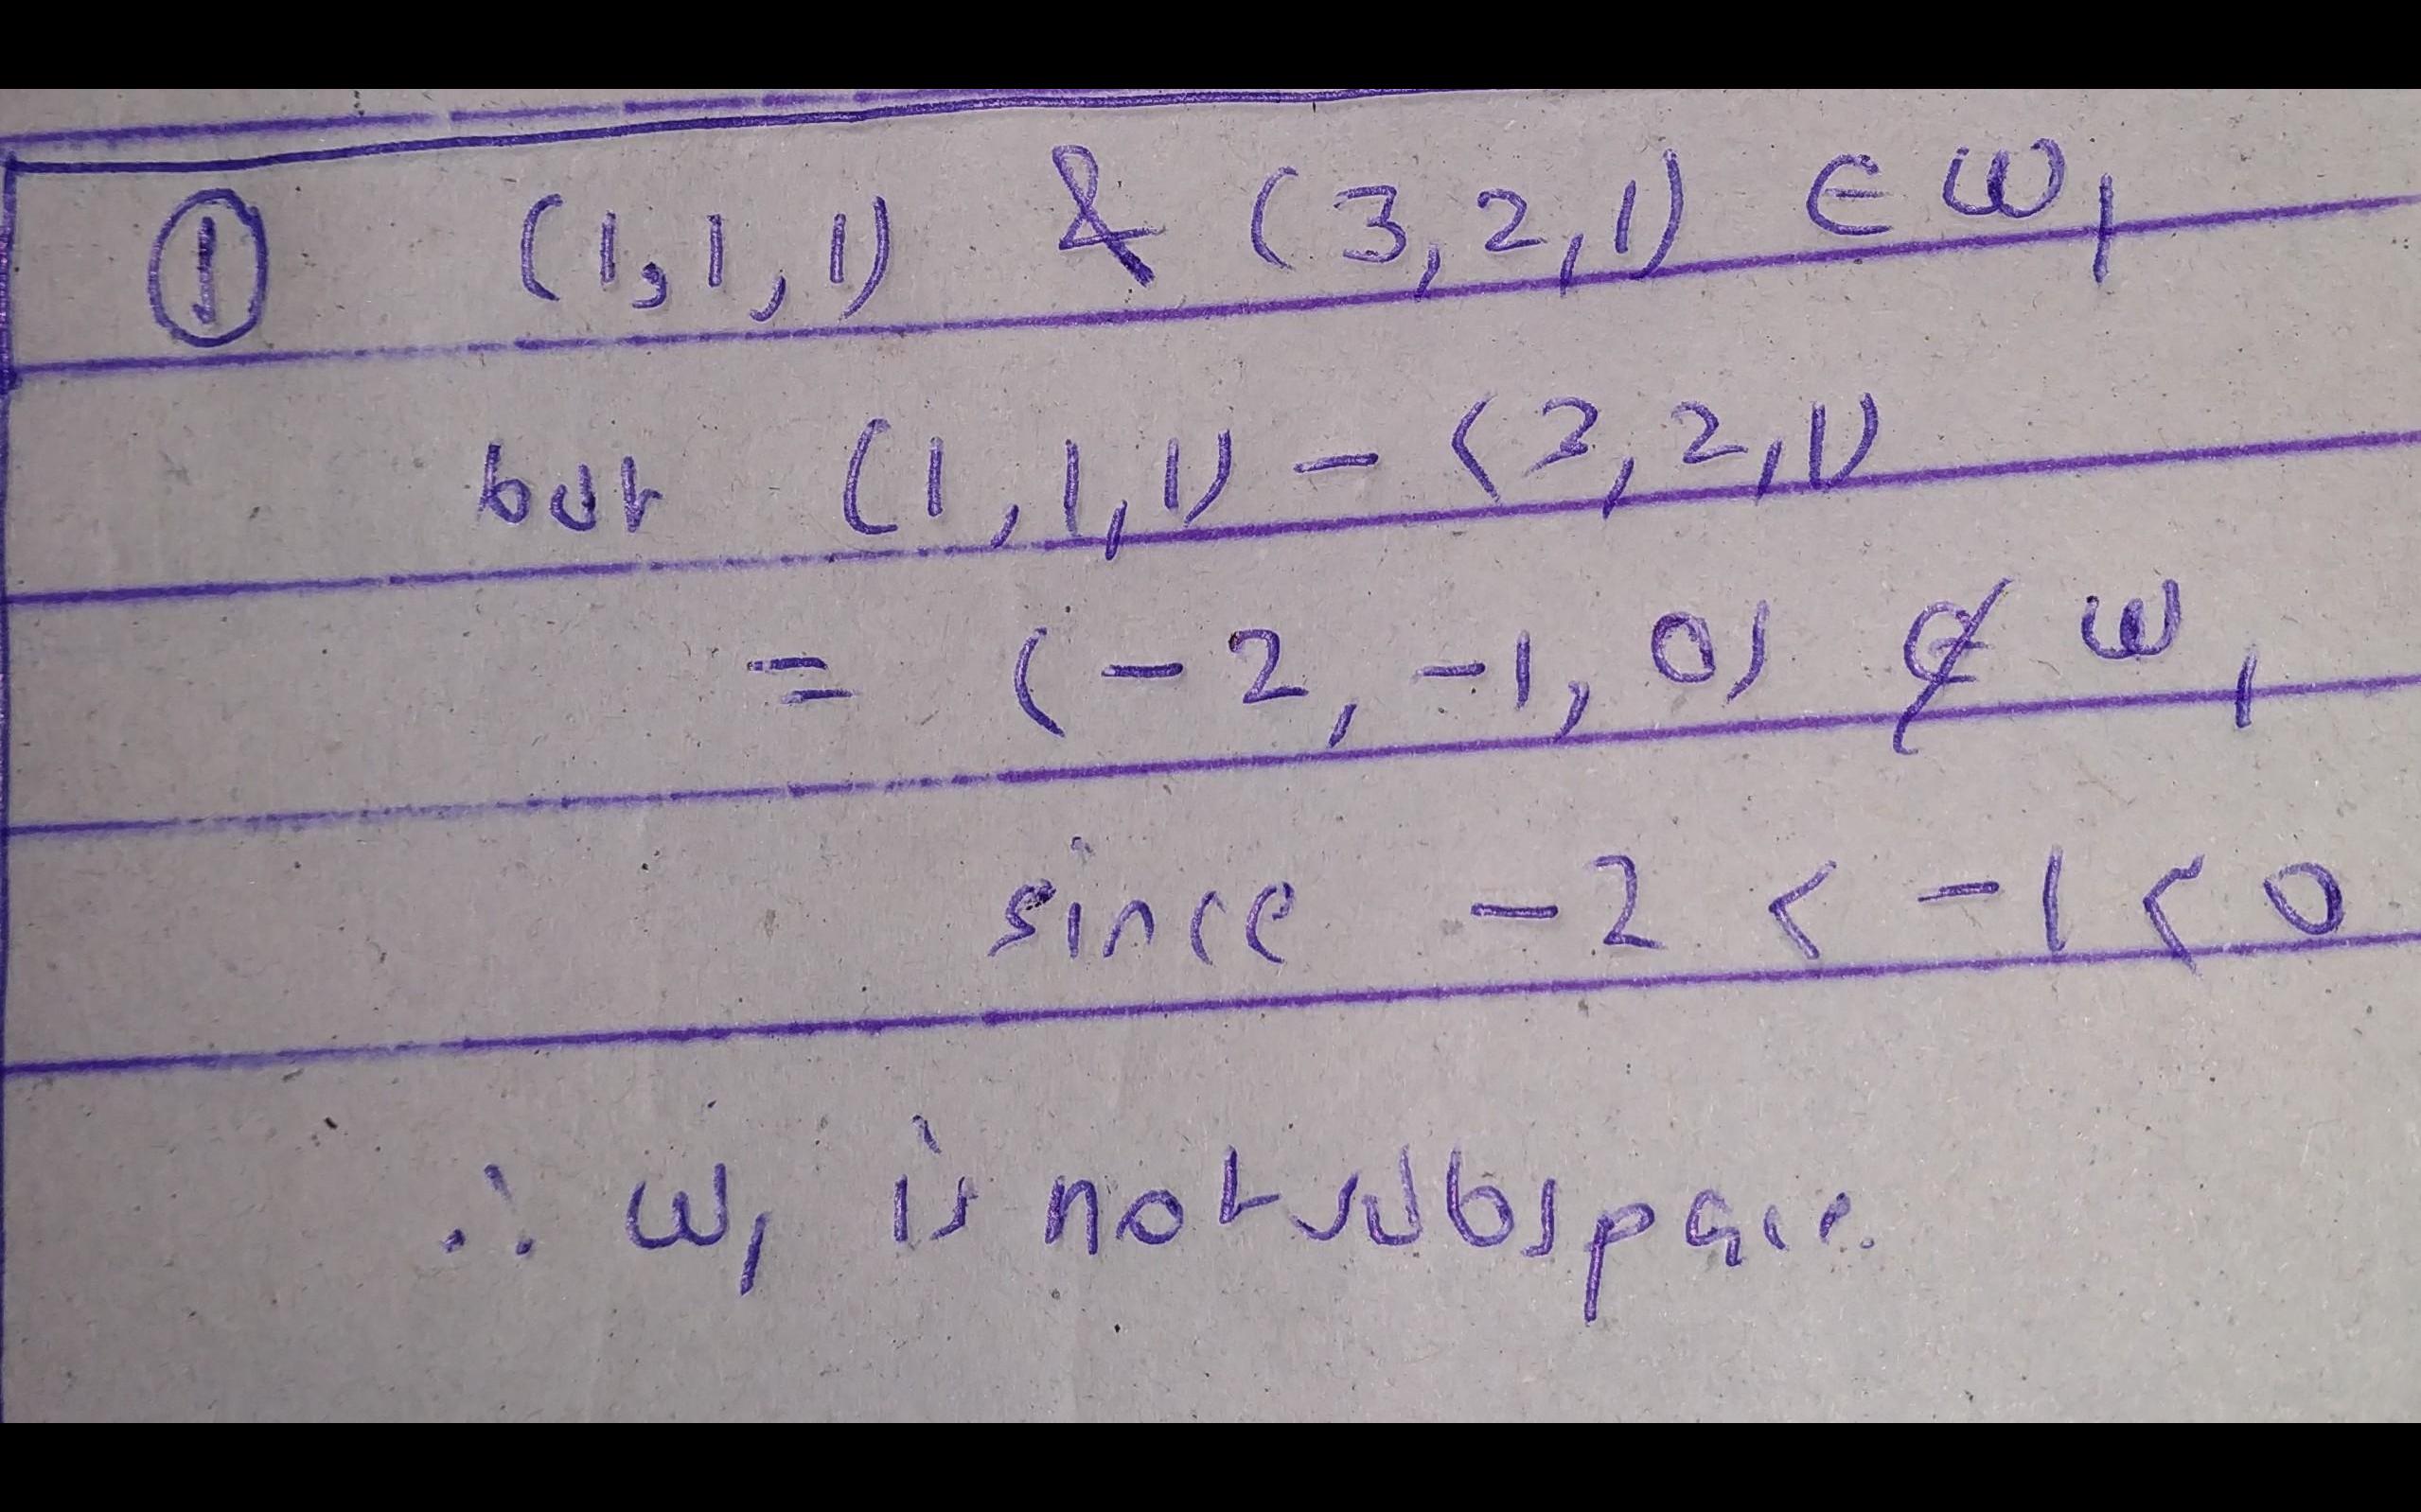 ① (1,1,1) & (3,2,1) ∈ W₁
but (1,1,1) - (3,2,1)
= (-2, -1, 0) ∉ W₁
since -2 < -1 < 0
∴ W₁ is not subspace.